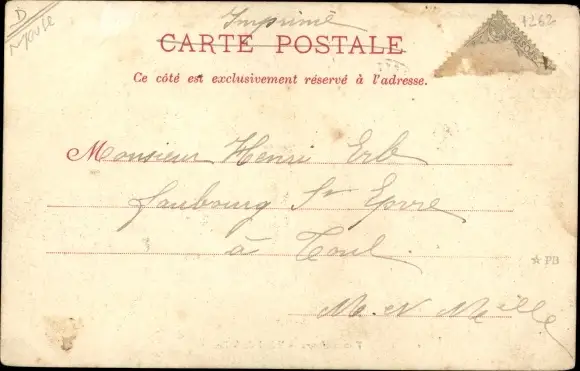 D
Imprimé
1262
CARTE POSTALE
Ce côté est exclusivement réservé à l'adresse.
Monsieur Henri Erb
faubourg St Epvre
à Toul
☆ PB
M. et Mlle